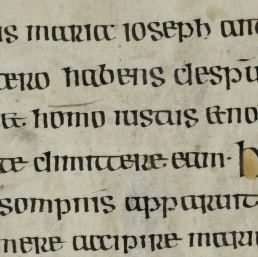 us maria ioseph ant
tero habens desp
et homo iustus et no
te dimittere eam · h
somnis apparuit
mere accipire mari